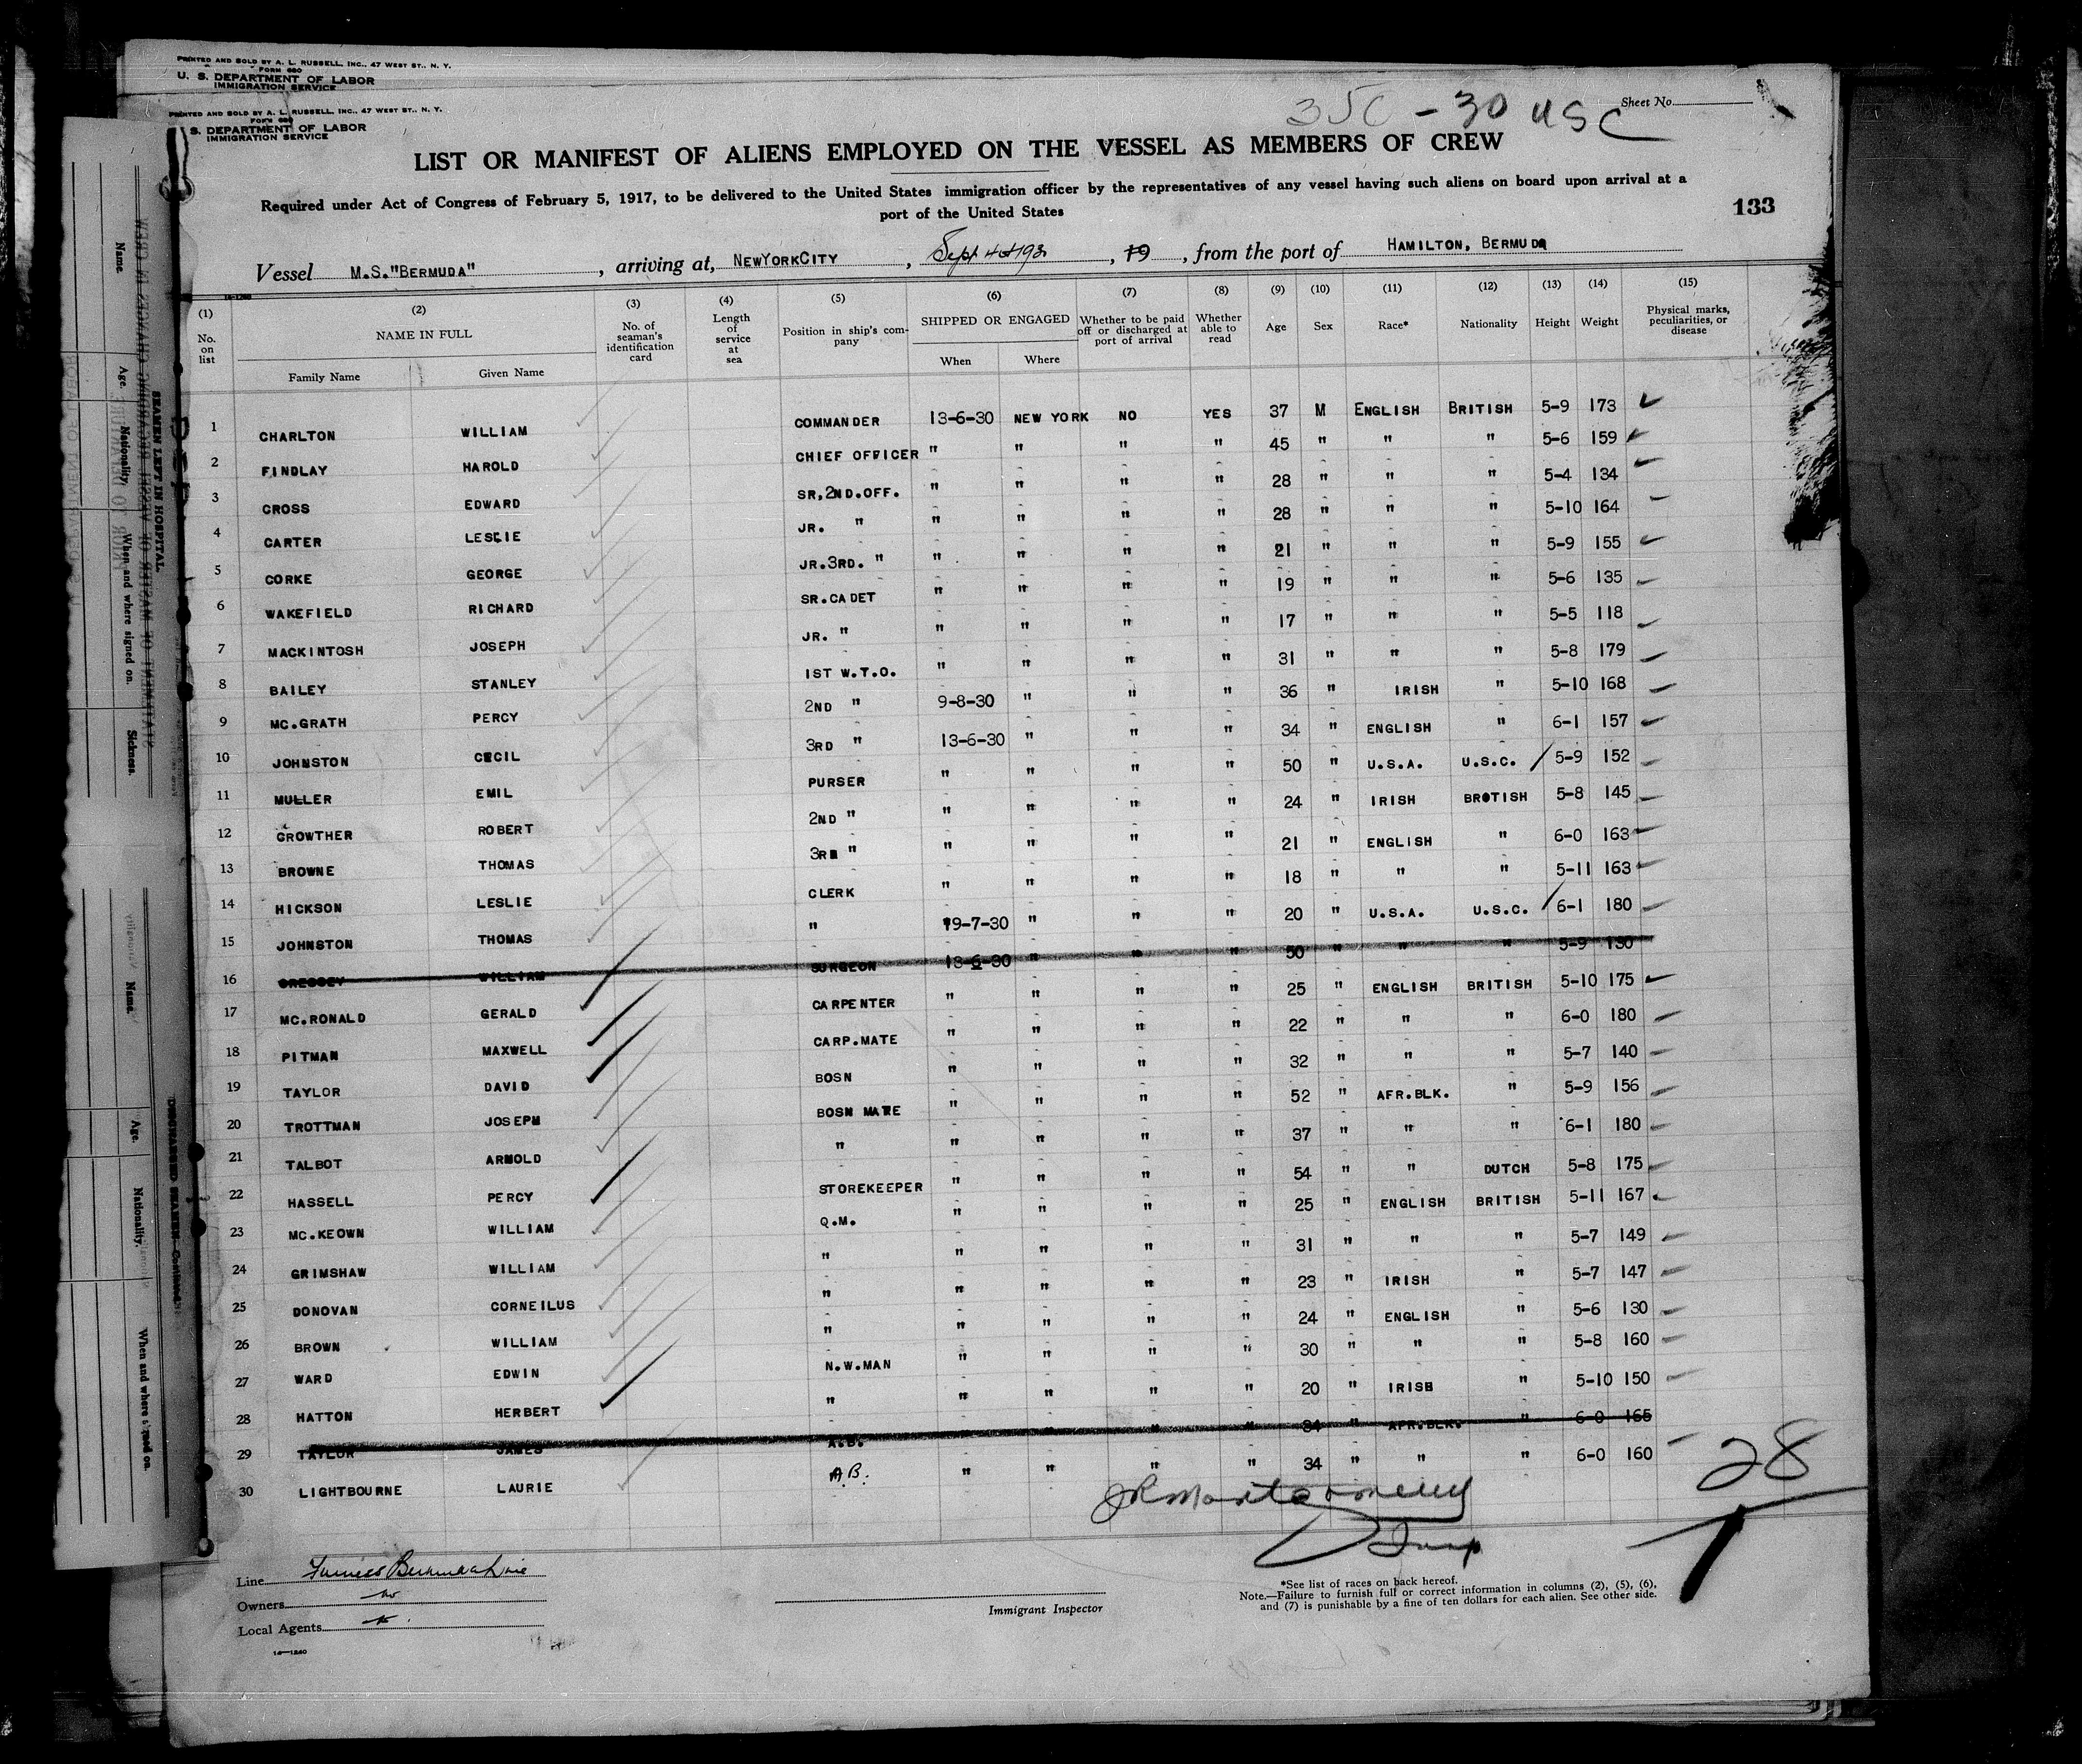 PRINTED AND SOLD BY A. L. RUSSELL, INC., 47 WEST ST., N. Y.
FORM 680
U. S. DEPARTMENT OF LABOR
IMMIGRATION SERVICE
PRINTED AND SOLD BY A. L. RUSSELL, INC., 47 WEST ST., N. Y.
S. DEPARTMENT OF LABOR
IMMIGRATION SERVICE
Sheet No.
- 30 USC
LIST OR MANIFEST OF ALIENS EMPLOYED ON THE VESSEL AS MEMBERS OF CREW
Required under Act of Congress of February 5, 1917, to be delivered to the United States immigration officer by the representatives of any vessel having such aliens on board upon arrival at a
port of the United States
133
Vessel M.S."BERMUDA" , arriving at, NEWYORKCITY , Sept 4th 193 , 19 , from the port of HAMILTON, BERMUDA
(1) (2) (3) (4) (5) (6) (7) (8) (9) (10) (11) (12) (13) (14) (15)
No. on list NAME IN FULL No. of seaman's identification card Length of service at sea Position in ship's company SHIPPED OR ENGAGED Whether to be paid off or discharged at port of arrival Whether able to read Age Sex Race* Nationality Height Weight Physical marks, peculiarities, or disease
Family Name Given Name When Where
1 CHARLTON WILLIAM COMMANDER 13-6-30 NEW YORK NO YES 37 M ENGLISH BRITISH 5-9 173
2 FINDLAY HAROLD CHIEF OFFICER " " " " 45 " " " 5-6 159
3 CROSS EDWARD SR,2ND.OFF. " " " " 28 " " " 5-4 134
4 CARTER LESLIE JR. " " " " " 28 " " " 5-10 164
5 CORKE GEORGE JR.3RD. " " " " " 21 " " " 5-9 155
6 WAKEFIELD RICHARD SR.CADET " " " " 19 " " " 5-6 135
7 MACKINTOSH JOSEPH JR. " " " " " 17 " " " 5-5 118
8 BAILEY STANLEY 1ST W.T.O. " " " " 31 " " " 5-8 179
9 MC.GRATH PERCY 2ND " 9-8-30 " " " 36 " IRISH " 5-10 168
10 JOHNSTON CECIL 3RD " 13-6-30 " " " 34 " ENGLISH " 6-1 157
11 MULLER EMIL PURSER " " " " 50 " U.S.A. U.S.C. 5-9 152
12 CROWTHER ROBERT 2ND " " " " " 24 " IRISH BROTISH 5-8 145
13 BROWNE THOMAS 3RD " " " " " 21 " ENGLISH " 6-0 163
14 HICKSON LESLIE CLERK " " " " 18 " " " 5-11 163
15 JOHNSTON THOMAS " 19-7-30 " " " 20 " U.S.A. U.S.C. 6-1 180
16 WILLIAM SURGEON 13-6-30 " " " 50 " " " 5-9 130
17 MC.RONALD GERALD CARPENTER " " " " 25 " ENGLISH BRITISH 5-10 175
18 PITMAN MAXWELL CARP.MATE " " " " 22 " " " 6-0 180
19 TAYLOR DAVID BOSN " " " " 32 " " " 5-7 140
20 TROTTMAN JOSEPH BOSN MATE " " " " 52 " AFR.BLK. " 5-9 156
21 TALBOT ARNOLD " " " " " 37 " " " 6-1 180
22 HASSELL PERCY STOREKEEPER " " " " 54 " " DUTCH 5-8 175
23 MC.KEOWN WILLIAM Q.M. " " " " 25 " ENGLISH BRITISH 5-11 167
24 GRIMSHAW WILLIAM " " " " " 31 " " " 5-7 149
25 DONOVAN CORNEILUS " " " " " 23 " IRISH " 5-7 147
26 BROWN WILLIAM " " " " " 24 " ENGLISH " 5-6 130
27 WARD EDWIN N.W.MAN " " " " 30 " " " 5-8 160
28 HATTON HERBERT " " " " " 20 " IRISB " 5-10 150
29 TAYLOR JAMES A.B. " " " " 34 " AFR.BLK. " 6-0 165
30 LIGHTBOURNE LAURIE A.B. " " " " 34 " " " 6-0 160
28
JR Montgomery
Insp
Line Furness Bermuda Line
Owners do
Local Agents do
16—1240
Immigrant Inspector
*See list of races on back hereof.
Note.—Failure to furnish full or correct information in columns (2), (5), (6),
and (7) is punishable by a fine of ten dollars for each alien. See other side.
SEAMEN LEFT IN HOSPITAL.
Name. Age. Nationality. When and where signed on. Sickness.
DISCHARGED SEAMEN—Continued
Name. Age. Nationality. When and where signed on.